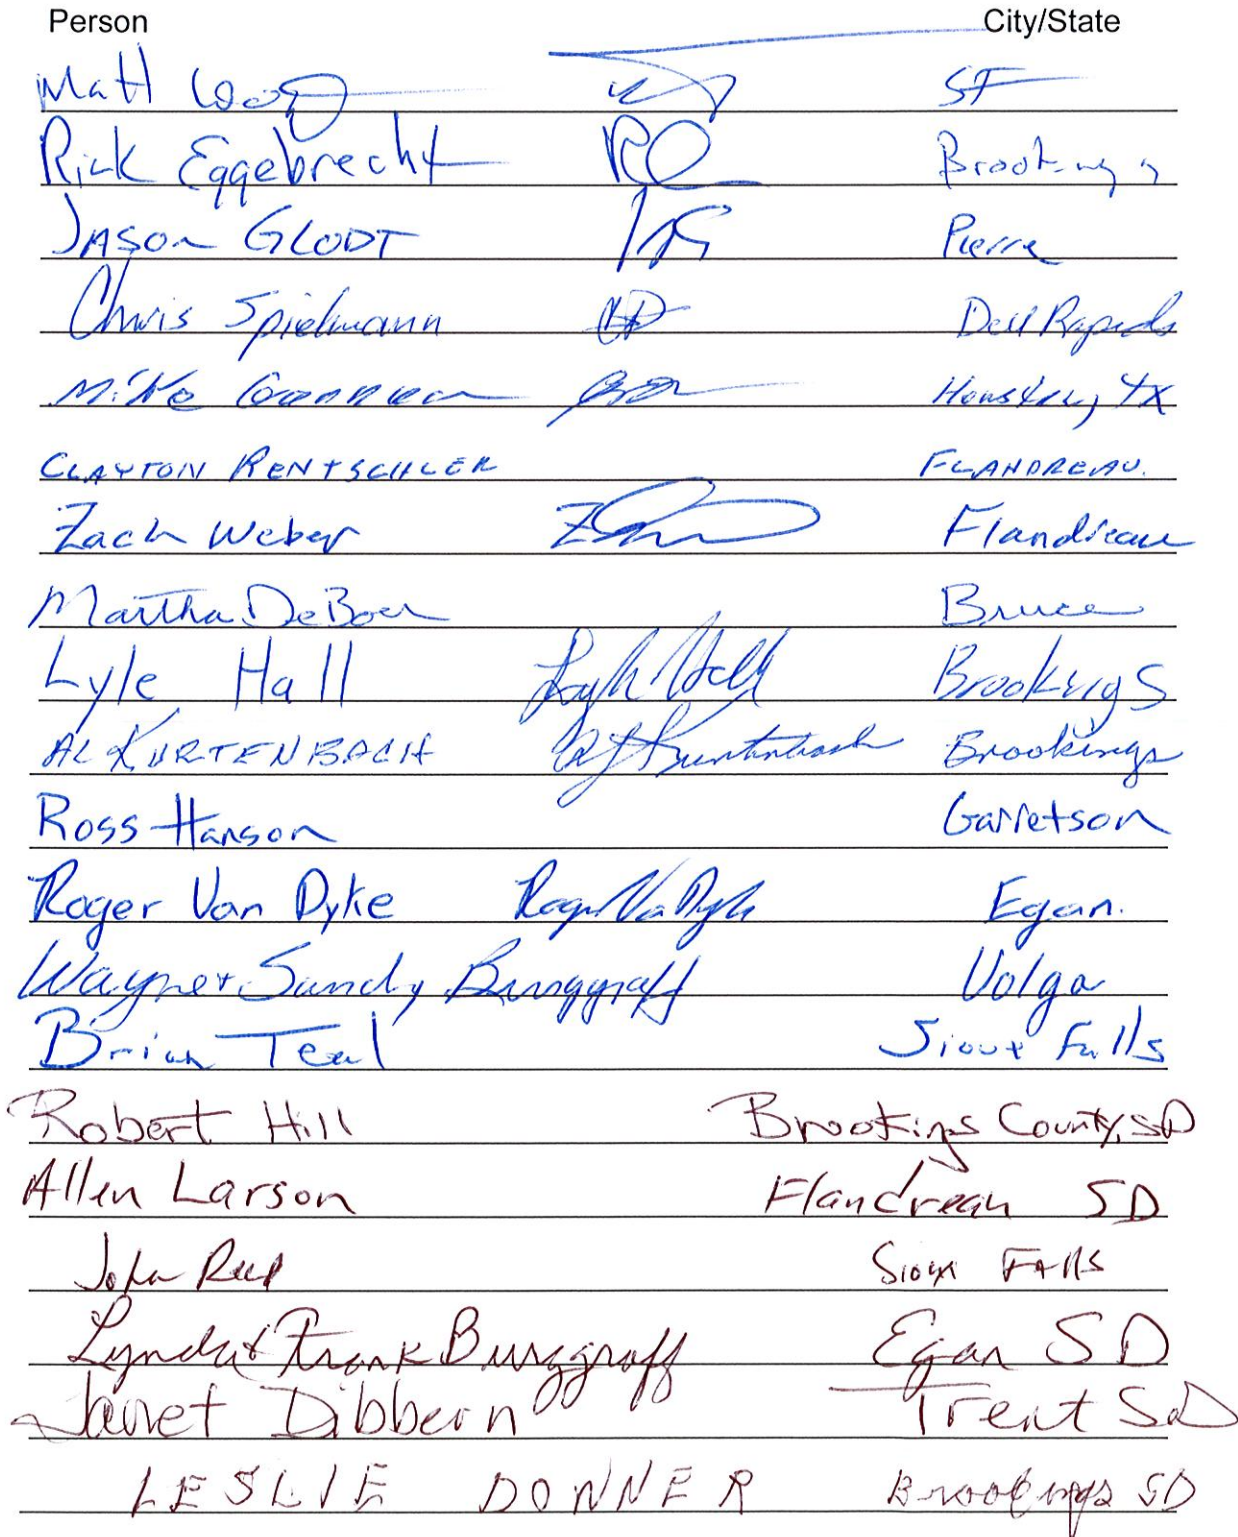 Person City/State
Matt SF
Rick Eggebrecht RE Brookings
JASON GLODT Pierre
Chris Spielmann Dell Rapids
Mike Houston, TX
CLAYTON RENTSCHLER FLANDREAU.
Zach Weber Flandreau
Martha DeBoer Bruce
Lyle Hall Lyle Hall Brookings
AL KURTENBACH Al Kurtenbach Brookings
Ross Hanson Garretson
Roger Van Dyke Roger Van Dyke Egan.
Wayne + Sandy Burggraff Volga
Brian Teal Sioux Falls
Robert Hill Brookings County, SD
Allen Larson Flandreau SD
John Reed Sioux FAlls
Lynda & Frank Burggraff Egan SD
Janet Dibbern Trent SD
LESLIE DONNER Brookings SD